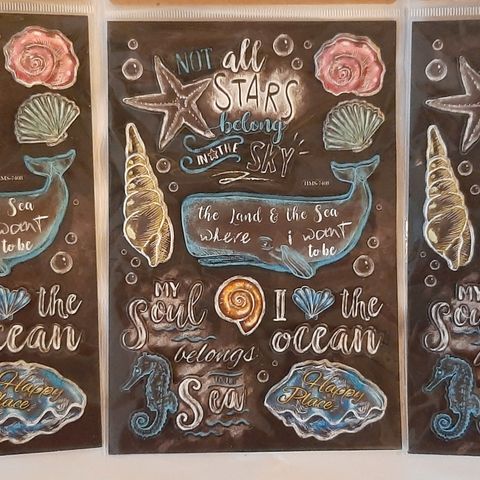 NOT all
STARS
belong
IN THE
SKY
HMS-7401
the Land & the Sea
where i want
to be
MY
Soul
belongs
TO THE
Sea
I the
ocean
Happy
Place
Sea
want
to be
the
ocean
Happy
Place
MY
So
be